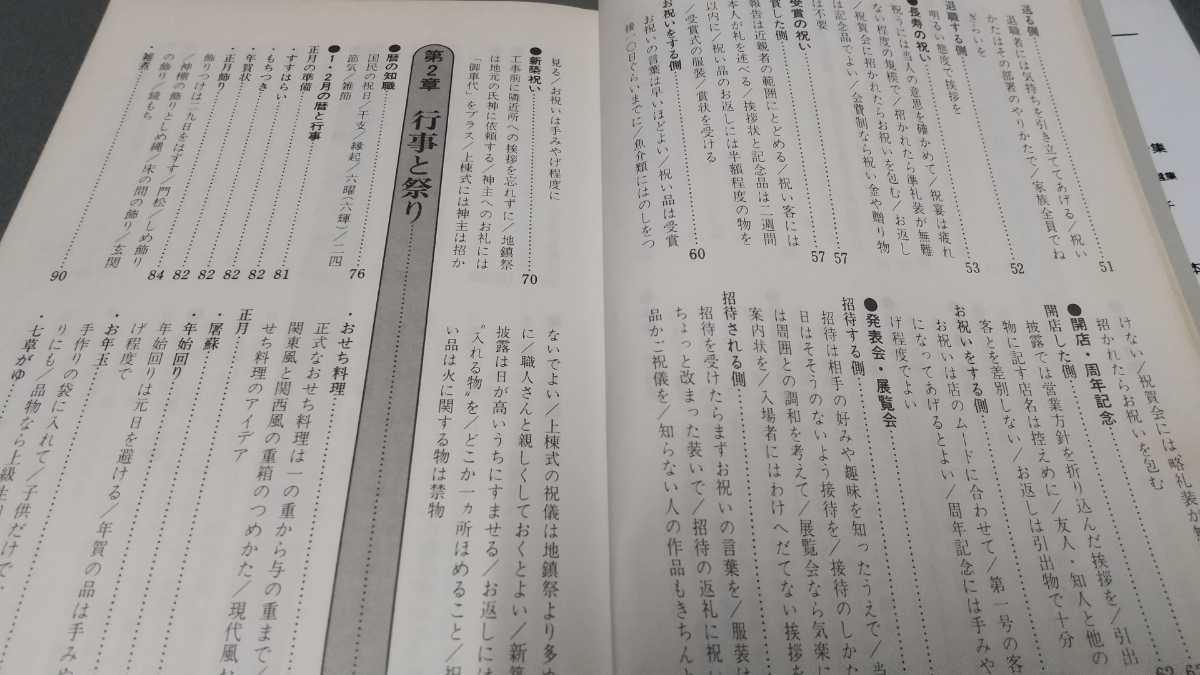 送る側
退職者には気持ちを引き立ててあげる／祝い
かたはその部署のやりかたで／家族全員でね
ぎらいを
51
退職する側
明るい態度で挨拶を
52
●長寿の祝い
祝うには当人の意思を確かめて／祝宴は疲れ
ない程度の規模で／招かれたら準礼装が無難
／祝賀会に招かれたらお祝いを包む／お返し
は記念品でよい／会費制なら祝い金や贈り物
は不要
53
受賞の祝い
賞した側
57
報告は近親者の範囲にとどめる／祝い客には
本人が礼を述べる／挨拶状と記念品は二週間
以内に／祝い品のお返しには半額程度の物を
／受賞式の服装／賞状を受ける
57
お祝いをする側
お祝いの言葉は早いほどよい／祝い品は受賞
後一〇日ぐらいまでに／魚介類にはのしをつ
60
けない／祝賀会には略礼装が
招かれたらお祝いを包む
●開店・周年記念
開店した側
披露では営業方針を折り込んだ挨拶を／引出
物に記す店名は控えめに／友人・知人と他の
客とを差別しない／お返しは引出物で十分
お祝いをする側
お祝いは店のムードに合わせて／第一号の客
になってあげるとよい／周年記念には手みや
げ程度でよい
●発表会・展覧会
招待する側
招待は相手の好みや趣味を知ったうえで／当
日はそそうのないよう接待を／接待のしかた
は周囲との調和を考えて／展覧会なら気楽に
案内状を／入場者にはわけへだてない挨拶を
招待される側
招待を受けたらまずお祝いの言葉を／服装は
ちょっと改まった装いで／招待の返礼に祝い
品かご祝儀を／知らない人の作品もきちん
見る／お祝いは手みやげ程度に
●新築祝い
70
工事前に隣近所への挨拶を忘れずに／地鎮祭
は地元の氏神に依頼する／神主へのお礼には
「御車代」をプラス／上棟式には神主は招か
ないでよい／上棟式の祝儀は地鎮祭より多
に／職人さんと親しくしておくとよい／新築
披露は日が高いうちにすませる／お返しには
“入れる物”を／どこか一ヵ所ほめること／祝
い品は火に関する物は禁物
第2章 行事と祭り
●暦の知識
76
国民の祝日／干支／縁起／六曜（六輝）／二四
節気／雑節
●1・2月の暦と行事
正月の準備
・すすはらい
81
・もちつき
82
・年賀状
82
・正月飾り
82
飾りつけは二九日をはずす／門松／しめ飾り
・神棚の飾りとしめ縄／床の間の飾り／玄関
84
の飾り／鏡もち
・雑煮
90
・おせち料理
正式なおせち料理は一の重から与の重まで／
関東風と関西風の重箱のつめかた／現代風お
せち料理のアイデア
正月
・屠蘇
・年始回り
年始回りは元日を避ける／年賀の品は手みや
げ程度で
・お年玉
手作りの袋に入れて／子供だけで
りにも／品物なら上級生
・七草がゆ